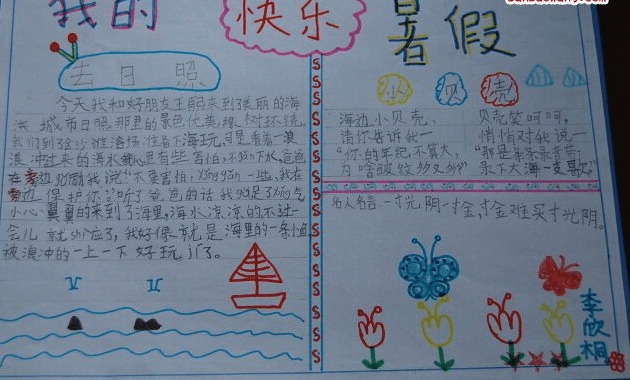 我的
快乐
暑假
去日照
今天我和好朋友王熙来到了美丽的海
滨城市日照,那里的景色优美,绿树环绕。
海玩,可是看着一浪
浪冲过来的海水
有些害怕,不敢下水,爸爸
在旁边鼓励我说:"不要害怕,勇敢一些,我在
旁边保护你。"听了爸爸的话我鼓足了勇气
小心翼翼的来到了海里,海水凉凉的不过一
会儿就shì应了,我好像就是海里的一条小鱼
被浪冲的一上一下好玩儿了。
小贝壳
海边小贝壳,
请你告诉我—
"你的年纪不算大,
为啥皱纹多又多?"
贝壳笑呵呵,
悄悄对我说—
"那是
永下大海一支歌。"
名人名言:一寸光阴一寸金,寸金难买寸光阴。
李欣桐